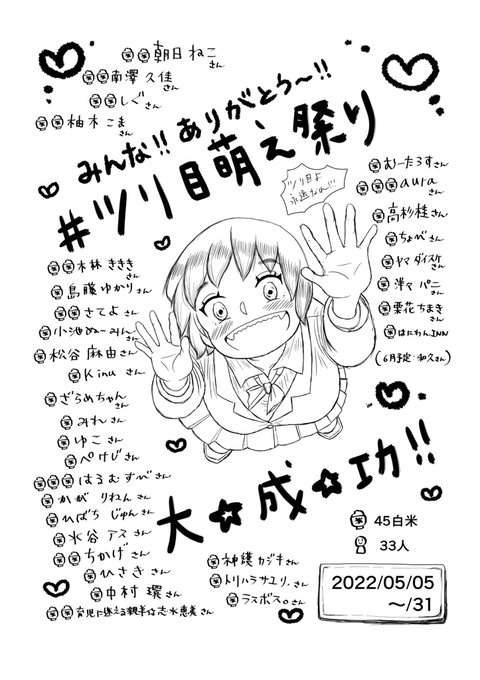 朝日ねこさん
南澤久佳さん
しぐさん
柚木こまさん
みんな!!ありがとう〜!!
#ツリ目萌え祭り
ツリ目よ
永遠なれ!!!
むーたろすさん
auraさん
高杉桂さん
ちょべさん
ヤマダイスケさん
洋々パニさん
栗花ちまきさん
はたわんINN
(6月予定:和久さん)
木林きききさん
島藤ゆかりさん
さてよさん
小池ぬーみんさん
松谷麻由さん
Kinuさん
ざらめちゃんさん
みれさん
ゆこさん
ぺけじさん
はるむすべさん
かがりねんさん
ひばちじゅんさん
水谷アスさん
ちかげさん
ひさきさん
中村環さん
育児に迷える親羊な志水恵美さん
神護カジキさん
トリハラサユリ.さん
ラスボス。さん
大☆成☆功!!
45白米
33人
2022/05/05
〜/31